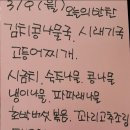 3/9 (월) 오늘의 반찬
김치콩나물국, 시래기국
고등어찌개,
시금치, 숙주나물, 콩나물
냉이나물, 파파래나물
호박버섯볶음, 꼬리고추조림